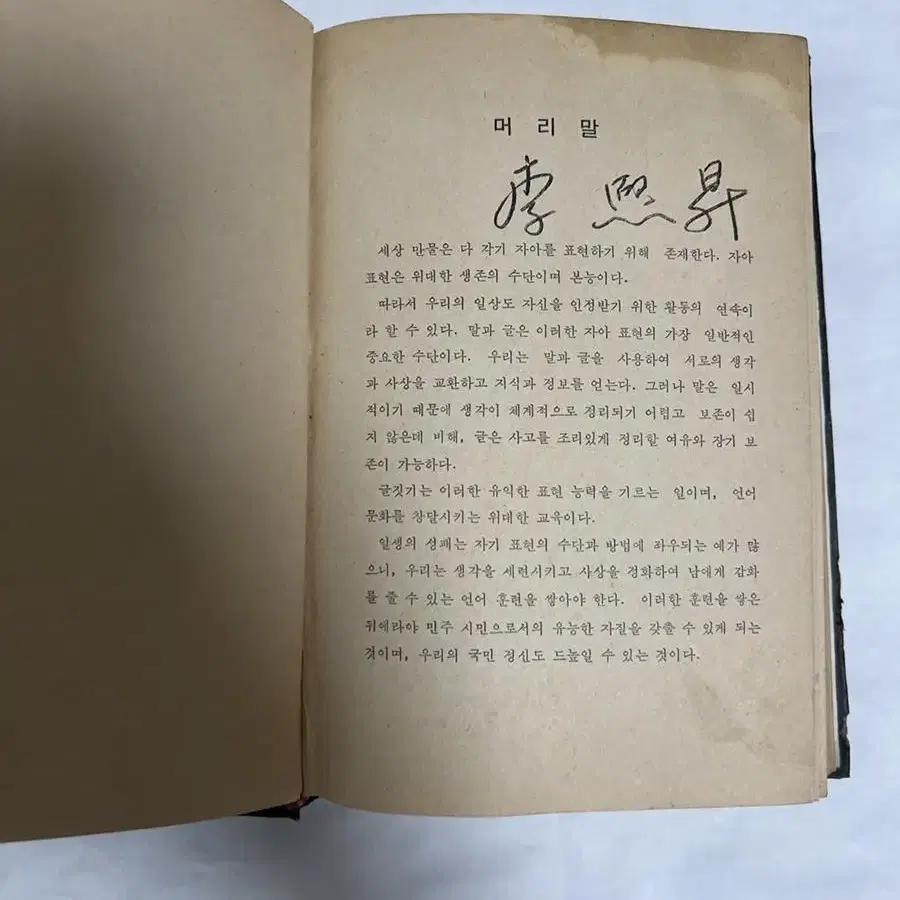 머리말
李熙昇
세상 만물은 다 각기 자아를 표현하기 위해 존재한다. 자아
표현은 위대한 생존의 수단이며 본능이다.
따라서 우리의 일상도 자신을 인정받기 위한 활동의 연속이
라 할 수 있다. 말과 글은 이러한 자아 표현의 가장 일반적인
중요한 수단이다. 우리는 말과 글을 사용하여 서로의 생각
과 사상을 교환하고 지식과 정보를 얻는다. 그러나 말은 일시
적이기 때문에 생각이 체계적으로 정리되기 어렵고 보존이 쉽
지 않은데 비해, 글은 사고를 조리있게 정리할 여유와 장기 보
존이 가능하다.
글짓기는 이러한 유익한 표현 능력을 기르는 일이며, 언어
문화를 창달시키는 위대한 교육이다.
일생의 성패는 자기 표현의 수단과 방법에 좌우되는 예가 많
으니, 우리는 생각을 세련시키고 사상을 정화하여 남에게 감화
를 줄 수 있는 언어 훈련을 쌓아야 한다. 이러한 훈련을 쌓은
뒤에라야 민주 시민으로서의 유능한 자질을 갖출 수 있게 되는
것이며, 우리의 국민 정신도 드높일 수 있는 것이다.